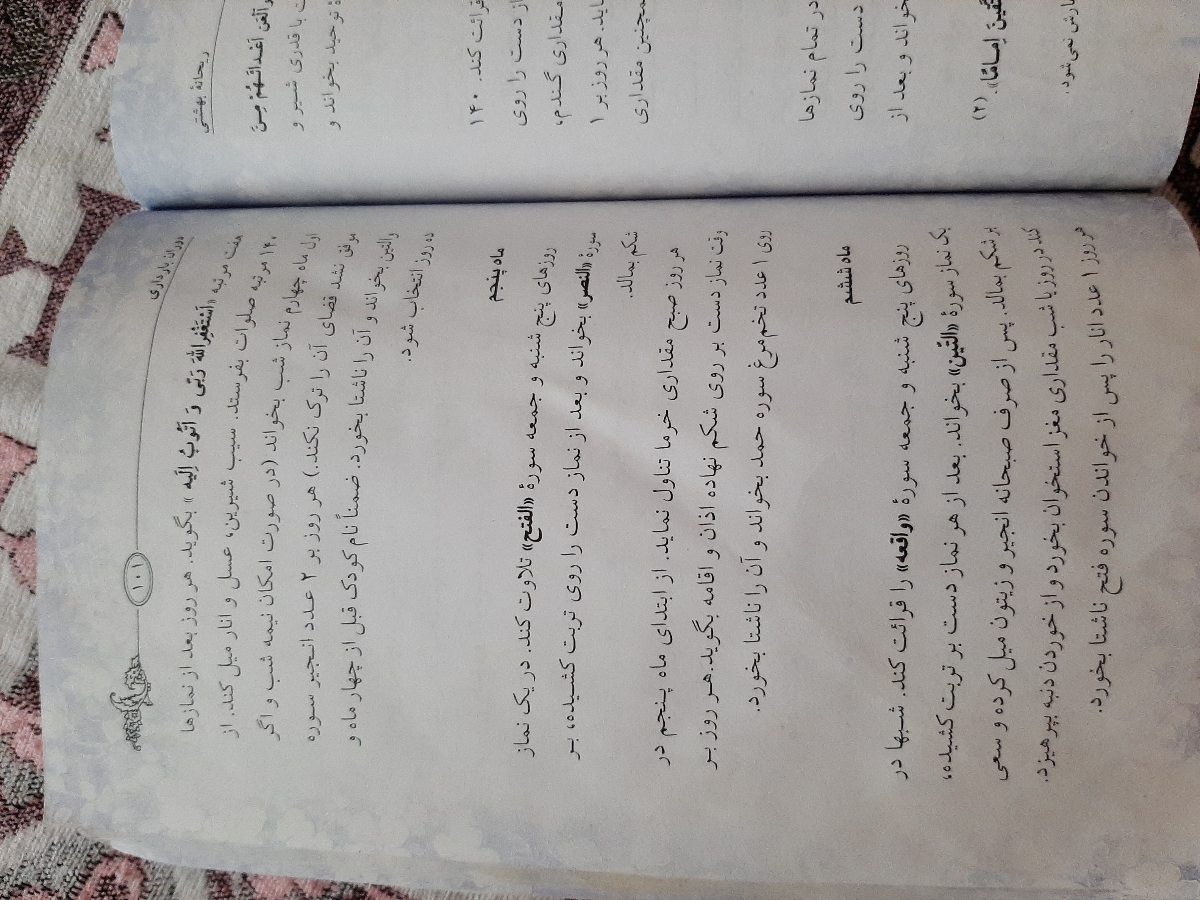 دوران بارداری
۱۰۱
هفت مرتبه «اَسْتَغْفِرُ اللّٰهَ رَبّی وَ اَتُوبُ اِلَیه» بگوید. هر روز بعد از نمازها
۱۴۰ مرتبه صلوات بفرستد. سیب شیرین، عسل و انار میل کند. از
اول ماه چهارم نماز شب بخواند (در صورت امکان نیمه شب و اگر
موفق نشد قضای آن را ترک نکند.) هر روز بر ۲ عدد انجیر سوره
والتین بخواند و آن را ناشتا بخورد. ضمناً نام کودک قبل از چهار ماه و
ده روز انتخاب شود.
ماه پنجم
روزهای پنج شنبه و جمعه سورهٔ «الفتح» تلاوت کند. در یک نماز
سورهٔ «النصر» بخواند و بعد از نماز دست را روی تربت کشیده، بر
شکم بمالد.
هر روز صبح مقداری خرما تناول نماید. از ابتدای ماه پنجم در
وقت نماز دست بر روی شکم نهاده اذان و اقامه بگوید. هر روز بر
روی ۱ عدد تخم‌مرغ سوره حمد بخواند و آن را ناشتا بخورد.
ماه ششم
روزهای پنج شنبه و جمعه سورهٔ «واقعه» را قرائت کند. شبها در
یک نماز سورهٔ «التّین» بخواند. بعد از هر نماز دست بر تربت کشیده،
بر شکم بمالد. پس از صرف صبحانه انجیر و زیتون میل کرده و سعی
کند در روز یا شب مقداری مغز استخوان بخورد و از خوردن دنبه بپرهیزد.
هر روز ۱ عدد انار را پس از خواندن سوره فتح ناشتا بخورد.
ریحانهٔ بهشتی
وَالْعَنْ اَعْدائَهُمْ مِنَ
با قدری شیر و
هٔ توحید بخواند و
قرائت کند. ۱۴۰
از دست را روی
مقداری گندم،
ید. هر روز بر ۱
مچنین مقداری
در تمام نمازها
دست را روی
خواند و بعد از
تَّقینَ اِماماً». (۲)
ارش نمی‌شود.